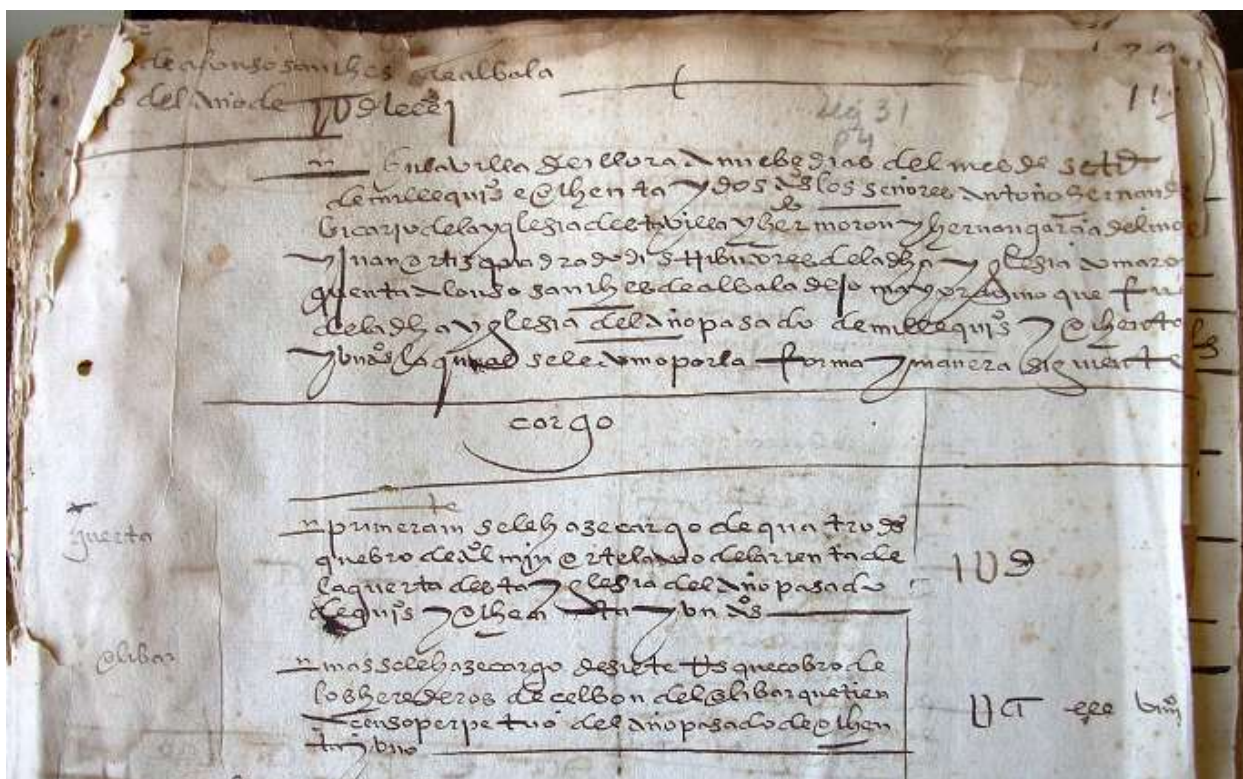 de alonso sanches de albala
del año de
leg 31
En la villa de illora a nuebe dias del mes de setᵉ
de mill e quisº e ochenta y dos aºs los señores antonio hernand
bicario de la yglesia desta villa y hermoron y hernan garcia del mo
y juan ortis quadrado distribuidores de la dha yglesia tomaro
quenta alonso sanches de albaladejo mayordomo que fu
de la dha yglesia del año pasado de mill e quisº y ochenta
y un aºs la qual se le tomo por la forma y manera siguiente
cargo
guerta
primeram se le haze cargo de quatro dºs
que bro de ortelano de la rrenta de
la guerta desta yglesia del año pasado
de quisº y ochenta y un aºs
olibar
mas se le haze cargo de siete rrs que cobro de
los herederos de del olibar que tien
a censo perpetuo del año pasado de ochen
ta y uno